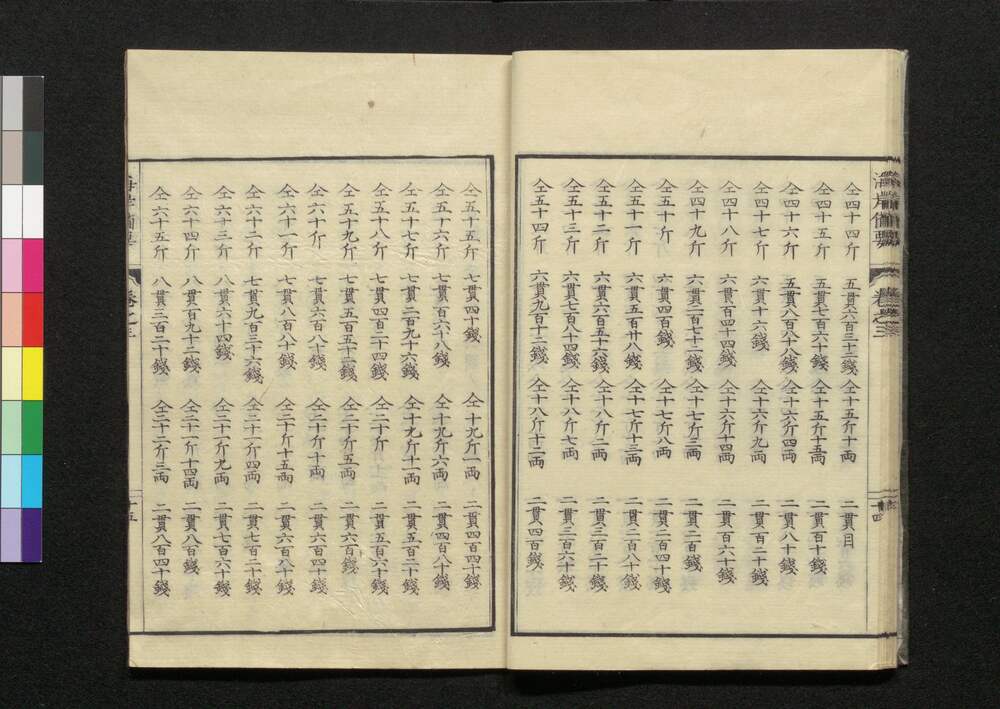 海岸備要 巻之三 十四
仝四十四斤 五貫六百三十二錢 仝十五斤十両 二貫目
仝四十五斤 五貫七百六十錢 仝十五斤十五両 二貫四十錢
仝四十六斤 五貫八百八十八錢 仝十六斤四両 二貫八十錢
仝四十七斤 六貫十六錢 仝十六斤九両 二貫百二十錢
仝四十八斤 六貫百四十四錢 仝十六斤十四両 二貫百六十錢
仝四十九斤 六貫二百七十二錢 仝十七斤三両 二貫二百錢
仝五十斤 六貫四百錢 仝十七斤八両 二貫二百四十錢
仝五十一斤 六貫五百廿八錢 仝十七斤十三両 二貫二百八十錢
仝五十二斤 六貫六百五十六錢 仝十八斤二両 二貫三百二十錢
仝五十三斤 六貫七百八十四錢 仝十八斤七両 二貫三百六十錢
仝五十四斤 六貫九百十二錢 仝十八斤十二両 二貫四百錢
仝五十五斤 七貫四十錢 仝十九斤一両 二貫四百四十錢
仝五十六斤 七貫百六十八錢 仝十九斤六両 二貫四百八十錢
仝五十七斤 七貫二百九十六錢 仝十九斤十一両 二貫五百二十錢
仝五十八斤 七貫四百二十四錢 仝二十斤 二貫五百六十錢
仝五十九斤 七貫五百五十二錢 仝二十斤五両 二貫六百錢
仝六十斤 七貫六百八十錢 仝二十斤十両 二貫六百四十錢
仝六十一斤 七貫八百八十錢 仝二十斤十五両 二貫六百八十錢
仝六十二斤 七貫九百三十六錢 仝二十一斤四両 二貫七百二十錢
仝六十三斤 八貫六十四錢 仝二十一斤九両 二貫七百六十錢
仝六十四斤 八貫百九十二錢 仝二十一斤十四両 二貫八百錢
仝六十五斤 八貫三百二十錢 仝二十二斤三両 二貫八百四十錢
海岸備要 巻之三 十五